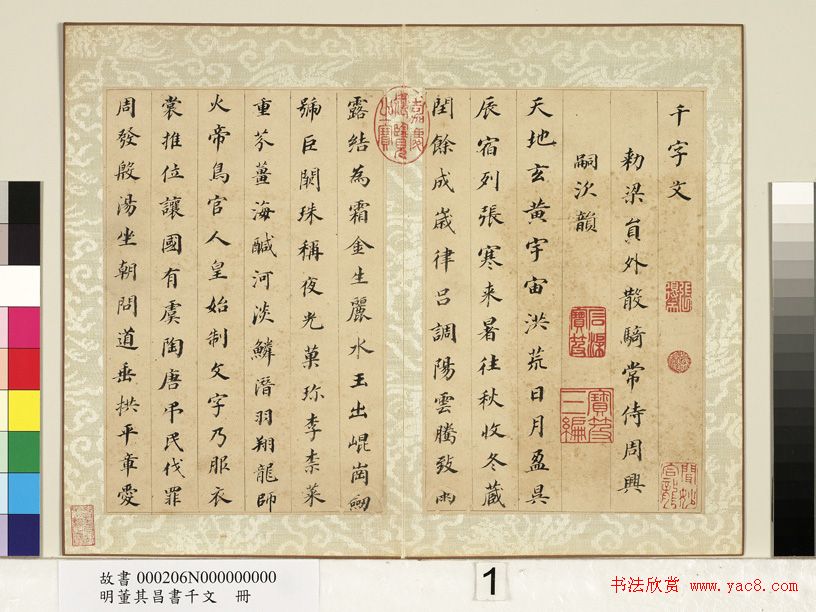 千字文
勑梁貟外散騎常侍周興
嗣次韻
天地玄黃宇宙洪荒日月盈昃
辰宿列張寒来暑往秋收冬藏
閏餘成嵗律吕調陽雲騰致雨
露結為霜金生麗水玉出崐崗劒
號巨闕珠稱夜光菓珎李柰菜
重芥薑海醎河淡鱗潛羽翔龍師
火帝鳥官人皇始制文字乃服衣
裳推位讓國有虞陶唐弔民伐罪
周發殷湯坐朝問道垂拱平章愛
嘉慶御覽之寶
石渠寶笈
寶笈三編
故書 000206N000000000
明董其昌書千文 冊
1
书法欣赏 www.yac8.com